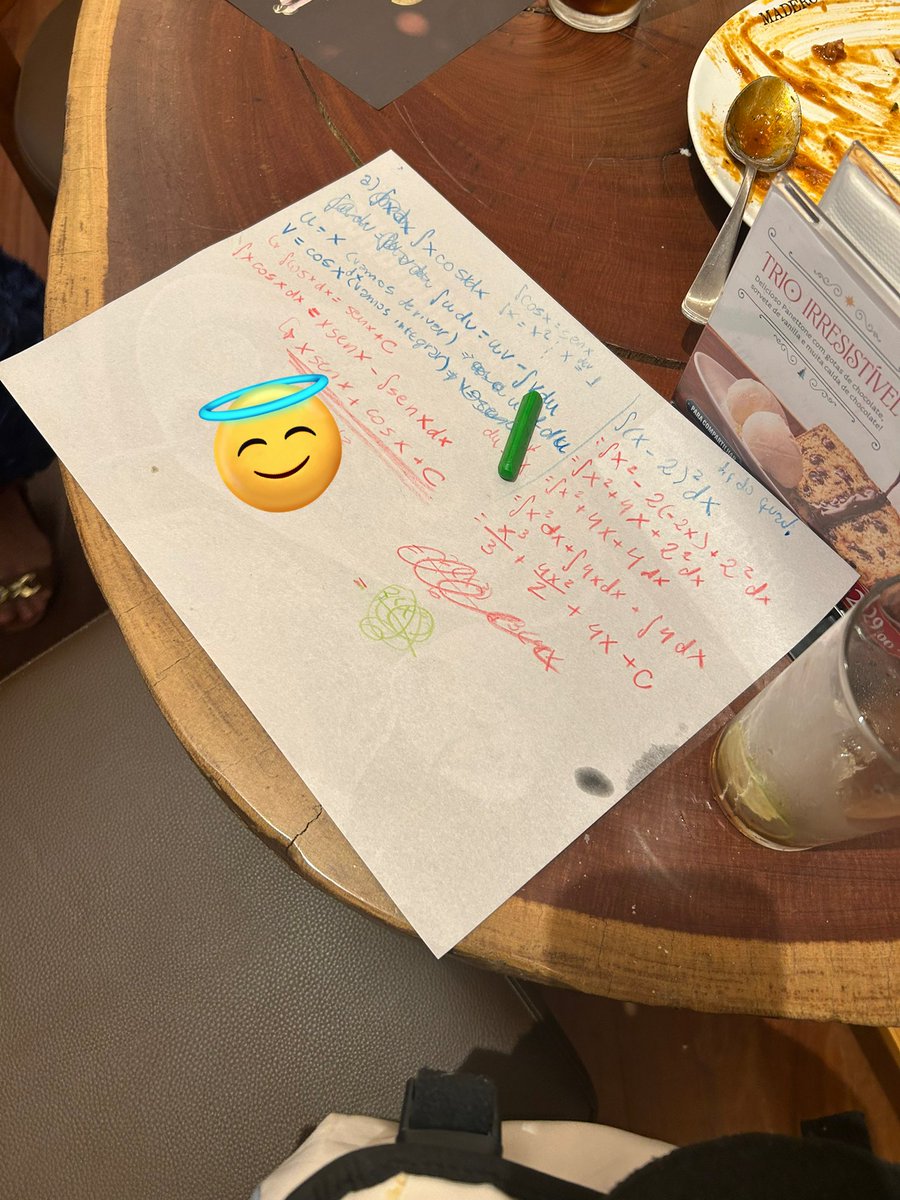 a) ∫x cosx dx
∫u dv = uv - ∫v du
u = x (vamos derivar)
v = cosx (vamos integrar)
∫cosx dx = senx + C
∫x cosx dx = x senx - ∫senx dx
x senx + cosx + C
∫(x - 2)² dx
= ∫x² - 2(-2x) + 2² dx
= ∫x² + 4x + 2² dx
= ∫x² + 4x + 4 dx
= ∫x² dx + ∫4x dx + ∫4 dx
= x³/3 + 4x²/2 + 4x + C
=
MADERO
TRIO IRRESISTÍVEL
Delicioso Panettone com gotas de chocolate,
sorvete de vanilla e muita calda de chocolate!
PARA COMPARTILHAR
29,00